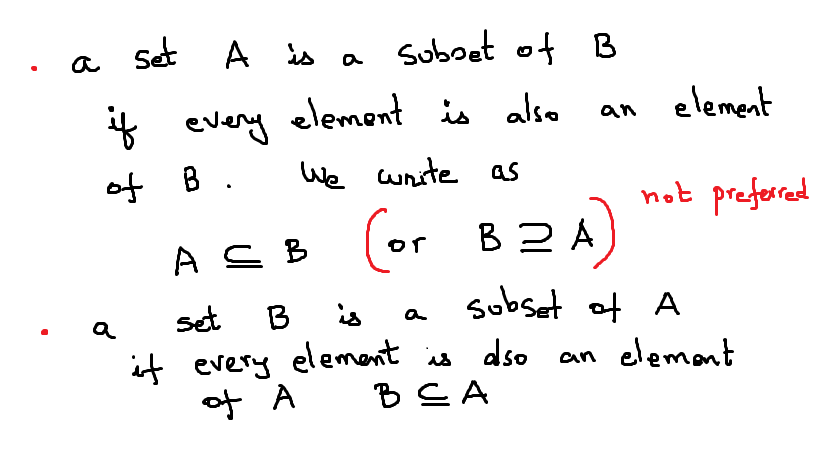 . a set A is a subset of B
if every element is also an element
of B. We write as
not preferred
A ⊆ B (or B ⊇ A)
. a set B is a subset of A
if every element is also an element
of A B ⊆ A